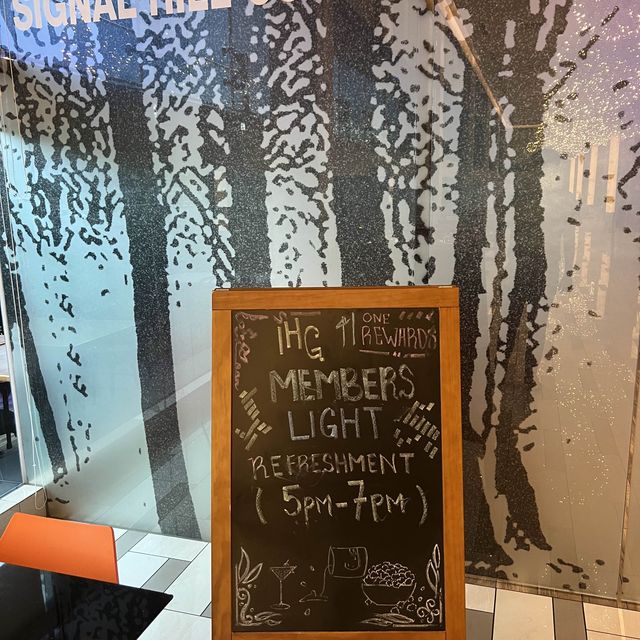 SIGNAL HILL
IHG ONE
REWARDS
MEMBERS
LIGHT
REFRESHMENT
(5pm-7pm)